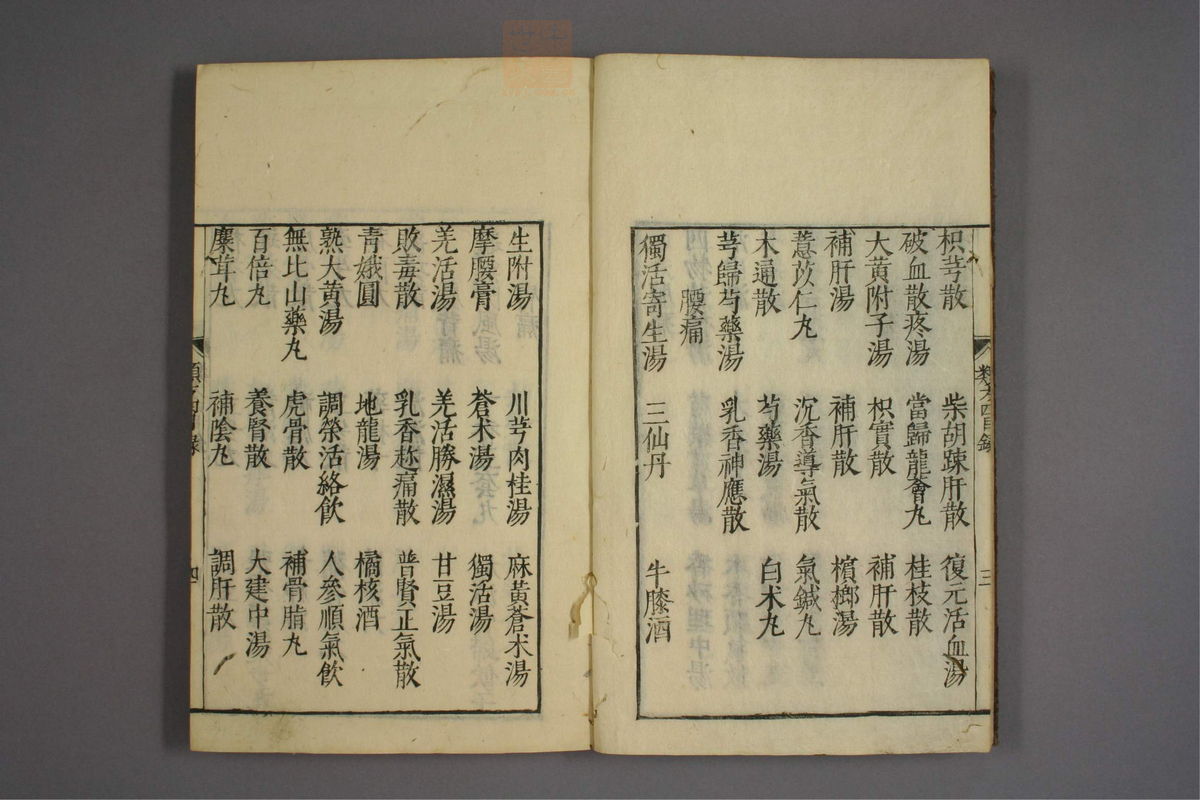 枳芎散　柴胡踈肝散　復元活血湯
破血散疼湯　當歸龍薈丸　桂枝散
大黄附子湯　枳實散　補肝散
補肝湯　補肝散　檳榔湯
薏苡仁丸　沉香導氣散　氣鍼丸
木通散　芍藥湯　白术丸
芎歸芍藥湯　乳香神應散
腰痛
獨活寄生湯　三仙丹　牛膝酒
類方四目錄　三
生附湯　川芎肉桂湯　麻黄蒼术湯
摩腰膏　蒼术湯　獨活湯
羌活湯　羌活勝濕湯　甘豆湯
敗毒散　乳香趂痛散　普賢正氣散
青娥圓　地龍湯　橘核酒
熟大黄湯　調榮活絡飲　人參順氣飲
無比山藥丸　虎骨散　補骨脂丸
百倍丸　養腎散　大建中湯
麋茸丸　補陰丸　調肝散
類方四目錄　四